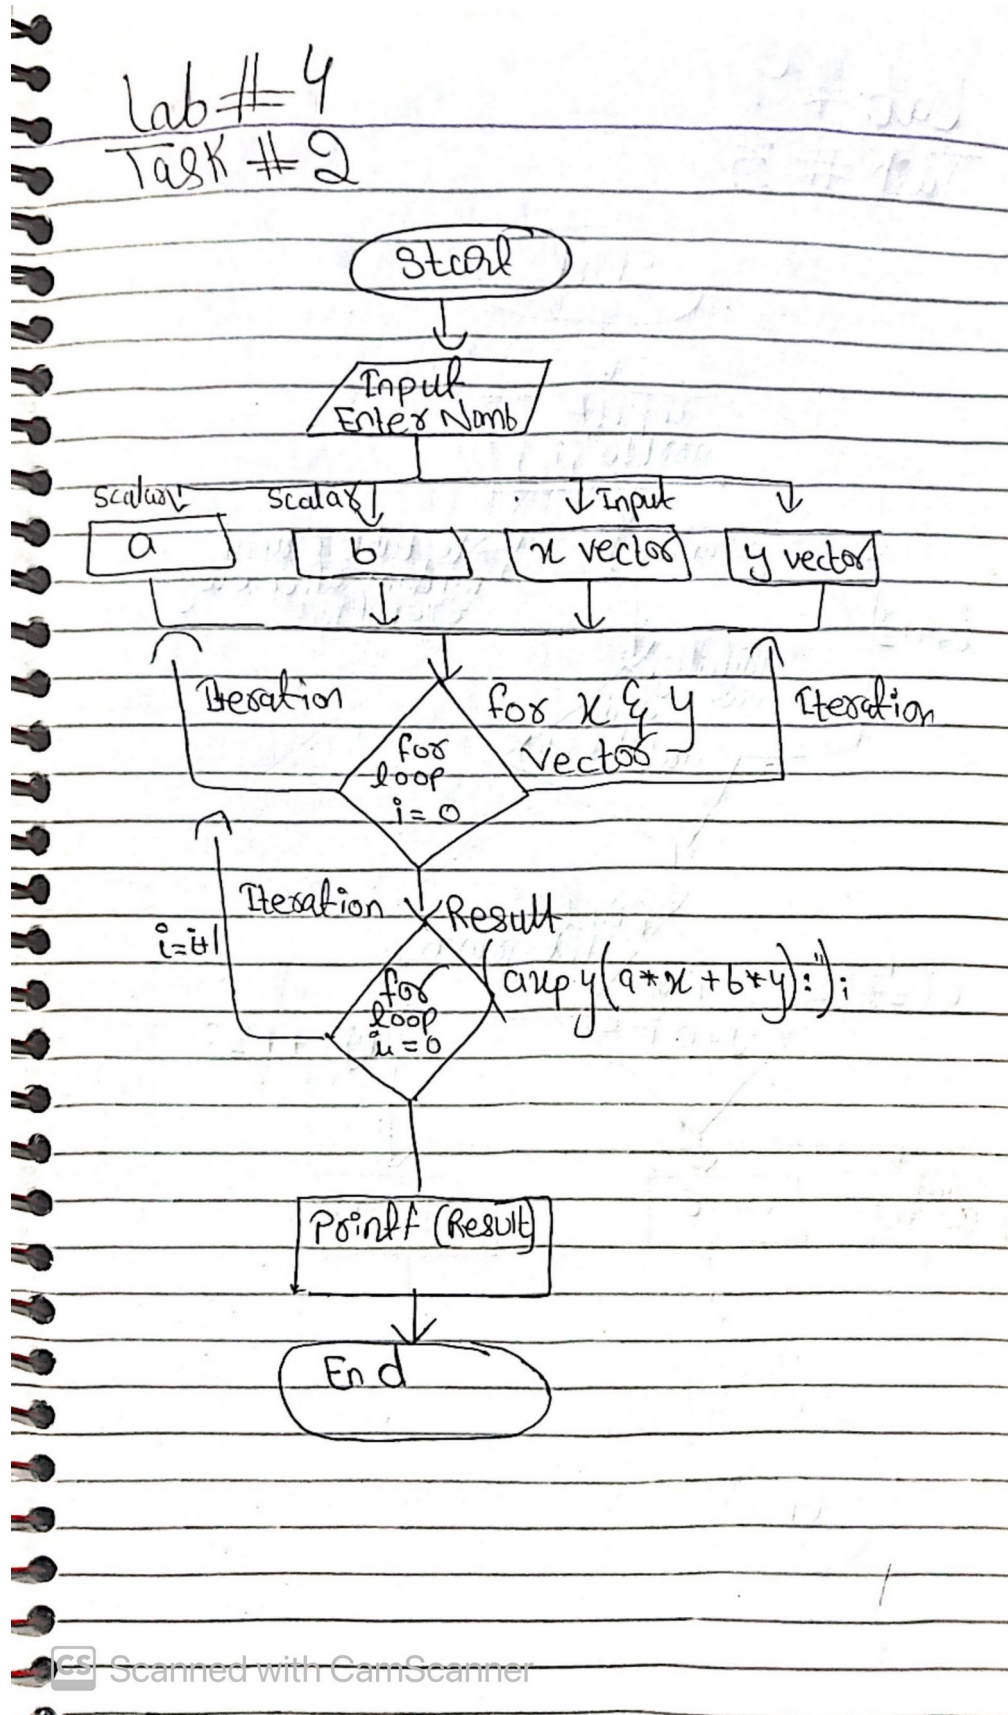 Lab # 4
Task # 2
Start
Input
Enter Numb
Scalar
Scalar
Input
a
b
x vector
y vector
Iteration
for x & y
vector
Iteration
for
loop
i = 0
Iteration
Result
i=i+1
(axpy(a*x+b*y):");
for
loop
i = 0
Printf (Result)
End
CS Scanned with CamScanner